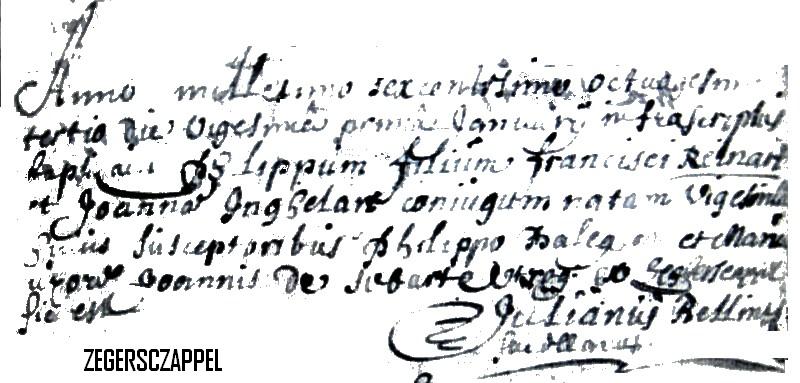 Anno millesimo sexcentesimo octuagesimo
tertio die vigesima prima Januarij infrascriptus
baptizavi Philippum filium francisci Reinart
et Joanna Inghelart coniugum natum vigesima
susceptoribus philippo et Maria
uxore Joannis De
sic est
Julianus Bellinus
ZEGERSCZAPPEL